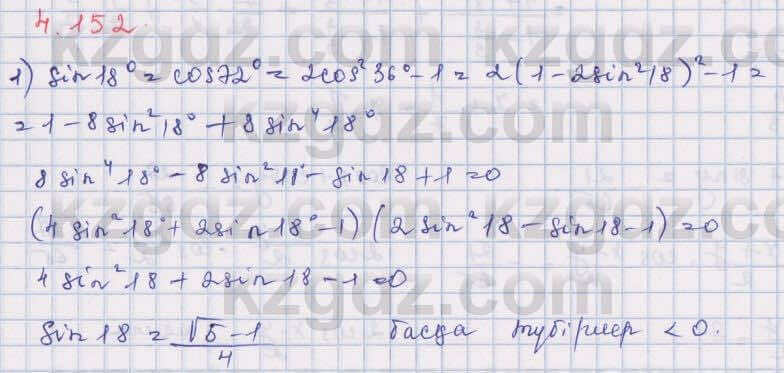 4.152.
1) sin18° = cos72° = 2cos²36° - 1 = 2(1 - 2sin²18)² - 1 =
= 1 - 8sin²18° + 8sin⁴18°
8sin⁴18° - 8sin²18° - sin18 + 1 = 0
(4sin²18° + 2sin18° - 1)(2sin²18 - sin18 - 1) = 0
4sin²18 + 2sin18 - 1 = 0
sin18 = (√5 - 1)/4 басқа түбірлер < 0.
kzgdz.com